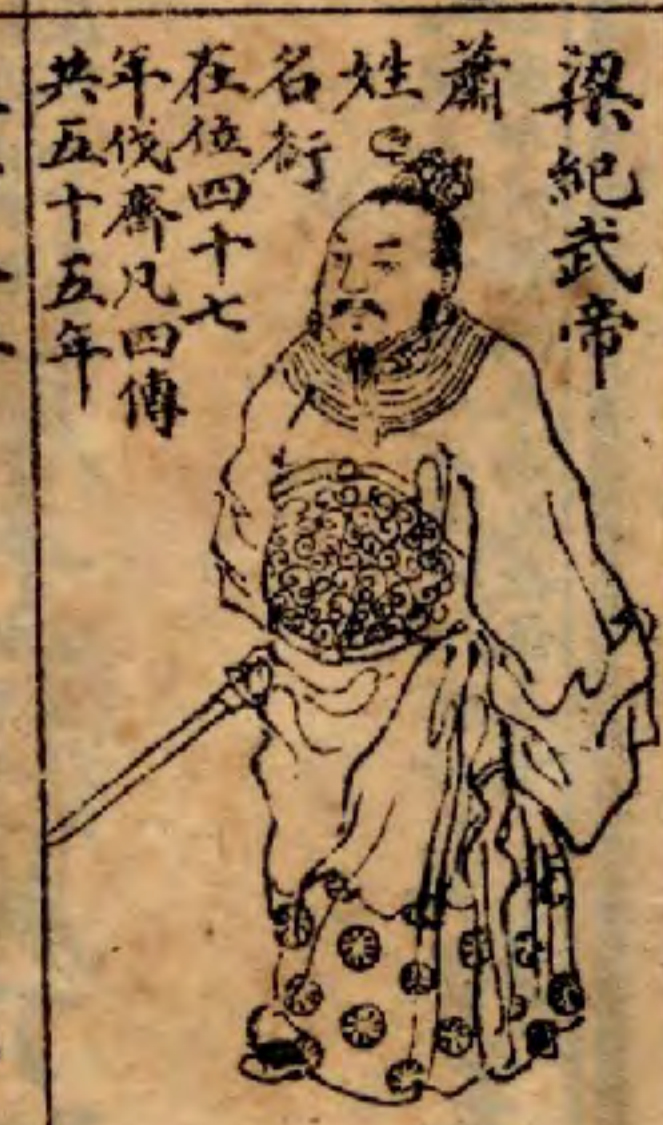 梁紀武帝
蕭
姓
名衍
在位四十七
年伐齊凡四傳
共五十五年